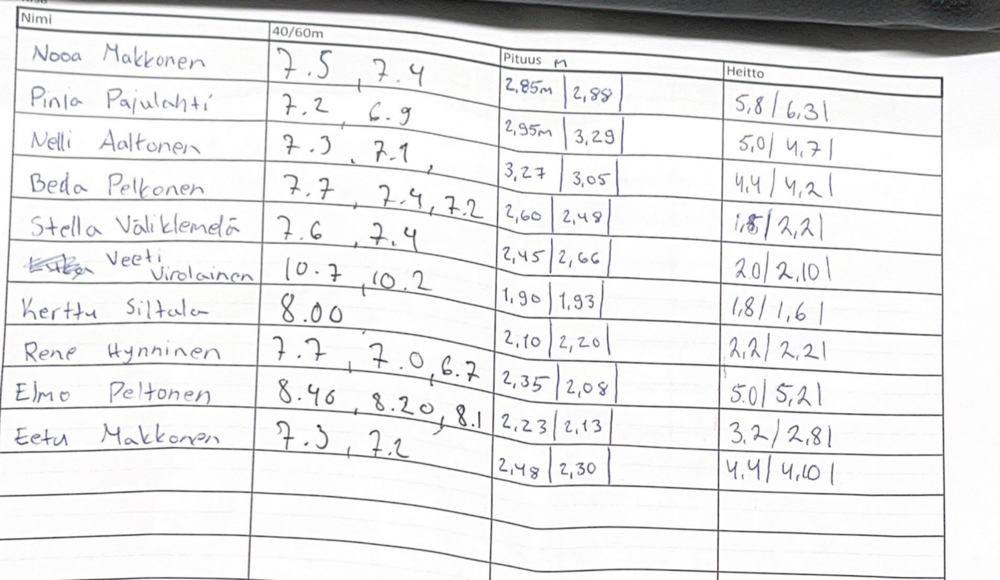 Nimi 40/60m Pituus m Heitto
Nooa Makkonen 7.5 , 7.4 2,85m | 2,88 | 5,8 / 6,3 |
Pinja Pajulahti 7.2 , 6.9 2,95m | 3,29 | 5,0 / 4,7 |
Nelli Aaltonen 7.3 , 7.1 , 3,27 | 3,05 | 4,4 / 4,2 |
Beda Pelkonen 7.7 , 7.4 , 7.2 2,60 | 2,48 | 1,8 / 2,2 |
Stella Väliklemelä 7.6 , 7.4 2,45 | 2,66 | 2.0 / 2,10 |
Veeti Virolainen 10.7 , 10.2 1,90 | 1,93 | 1,8 / 1,6 |
Kerttu Siltala 8.00 2,10 | 2,20 | 2,2 / 2,2 |
Rene Hynninen 7.7 , 7.0 , 6.7 2,35 | 2,08 | 5.0 / 5,2 |
Elmo Peltonen 8.40 , 8.20 , 8.1 2,23 | 2,13 | 3,2 / 2,8 |
Eetu Makkonen 7.3 , 7.2 2,48 | 2,30 | 4,4 / 4,10 |